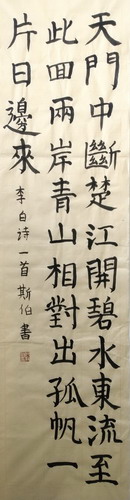 天門中斷楚江開碧水東流至
此回兩岸青山相對出孤帆一
片日邊來
李白诗一首斯伯書